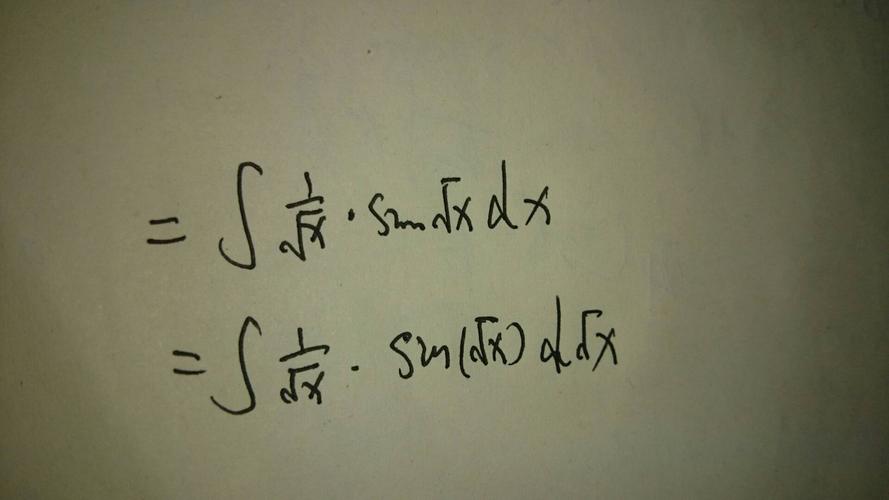 = ∫ 1/√x · sin√x dx
= ∫ 1/√x · sin(√x) d√x